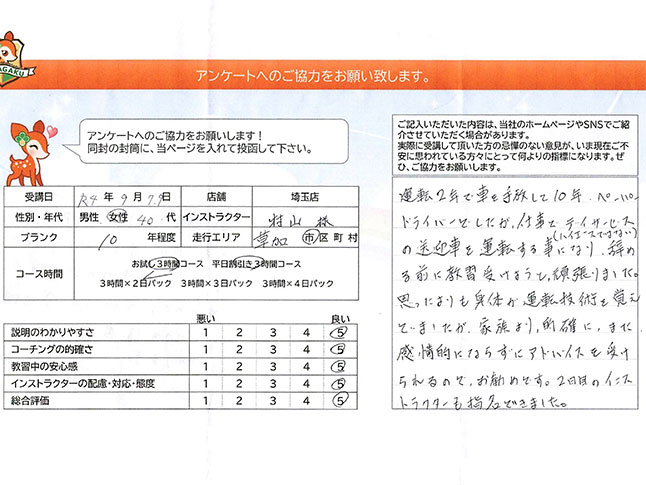 AGAKU
アンケートへのご協力をお願い致します。
アンケートへのご協力をお願いします!
同封の封筒に、当ページを入れて投函して下さい。
受講日 R4年 9月 7.9日 店舗 埼玉店
性別・年代 男性 女性 40代 インストラクター 村山 様
ブランク 10 年程度 走行エリア 草加 市区町村
コース時間
お試し3時間コース 平日割引き3時間コース
3時間×2日パック 3時間×3日パック 3時間×4日パック
悪い 良い
説明のわかりやすさ 1 2 3 4 5
コーチングの的確さ 1 2 3 4 5
教習中の安心感 1 2 3 4 5
インストラクターの配慮・対応・態度 1 2 3 4 5
総合評価 1 2 3 4 5
ご記入いただいた内容は、当社のホームページやSNSでご紹
介させていただく場合があります。
実際に受講して頂いた方の忌憚のない意見が、いま現在ご不
安に思われている方々にとって何よりの指標になります。ぜ
ひ、ご協力をお願いします。
運転2年で車を手放して10年。ペーパー
ドライバーでしたが、仕事でデイサービス
(ハイエースではない)
の送迎車を運転する事になり、辞め
る前に教習受けようと、頑張りました。
思ったよりも身体が運転技術を覚え
ていましたが、家族より、的確に、また
感情的にならずにアドバイスを受け
られるので、お勧めです。2回目のインス
トラクターも指名できました。